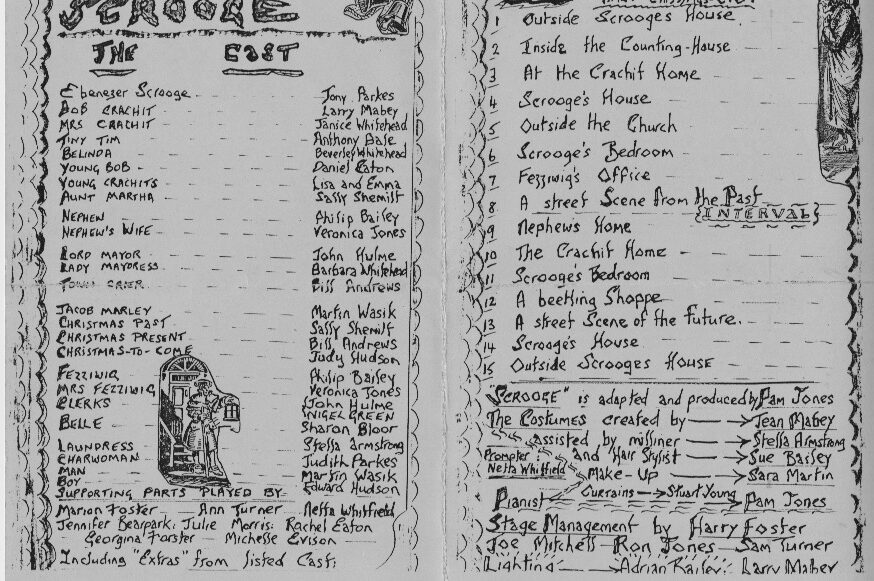 SCROOGE
THE CAST
Ebenezer Scrooge Tony Parkes
BOB CRACHIT Larry Mabey
MRS CRACHIT Janice Whitehead
TINY TIM Anthony Bale
BELINDA Beverley Whitehead
YOUNG BOB Daniel Eaton
YOUNG CRACHITS Lisa and Emma
AUNT MARTHA Sally Shemilt
NEPHEW Philip Bailey
NEPHEW'S WIFE Veronica Jones
LORD MAYOR John Hulme
LADY MAYORESS Barbara Whitehead
TOWN CRIER Bill Andrews
JACOB MARLEY Martin Wasik
CHRISTMAS PAST Sally Shemilt
CHRISTMAS PRESENT Bill Andrews
CHRISTMAS-TO-COME Judy Hudson
FEZZIWIG Philip Bailey
MRS FEZZIWIG Veronica Jones
CLERKS {John Hulme
{NIGEL GREEN
BELLE Sharon Bloor
LAUNDRESS Stella Armstrong
CHARWOMAN Judith Parkes
MAN Martin Wasik
BOY Edward Hudson
SUPPORTING PARTS PLAYED BY
Marion Foster Ann Turner Netta Whitfield
Jennifer Bearpark: Julie Morris: Rachel Eaton
Georgina Forster Michelle Evison
Including "Extras" from listed Cast:
1 Outside Scrooges House
2 Inside the Counting-House
3 At the Crachit Home
4 Scrooge's House
5 Outside the Church
6 Scrooge's Bedroom
7 Fezziwig's Office
8. A street Scene from the Past
{INTERVAL}
9 Nephews Home
10 The Crachit Home
11 Scrooge's Bedroom
12 A beetling Shoppe
13 A street Scene of the future.
14 Scrooge's House
15 Outside Scrooges HOUSE
"SCROOGE" is adapted and produced by Pam Jones
The Costumes created by Jean Mabey
assisted by milliner Stella Armstrong
and Hair Stylist Sue Bailey
Prompter:
Netta Whitfield
Make-Up Sara Martin
Curtains Stuart Young
Pianist Pam Jones
Stage Management by Harry Foster
Joe Mitchell Ron Jones Sam Turner
Lighting Adrian Bailey: Larry Mabey